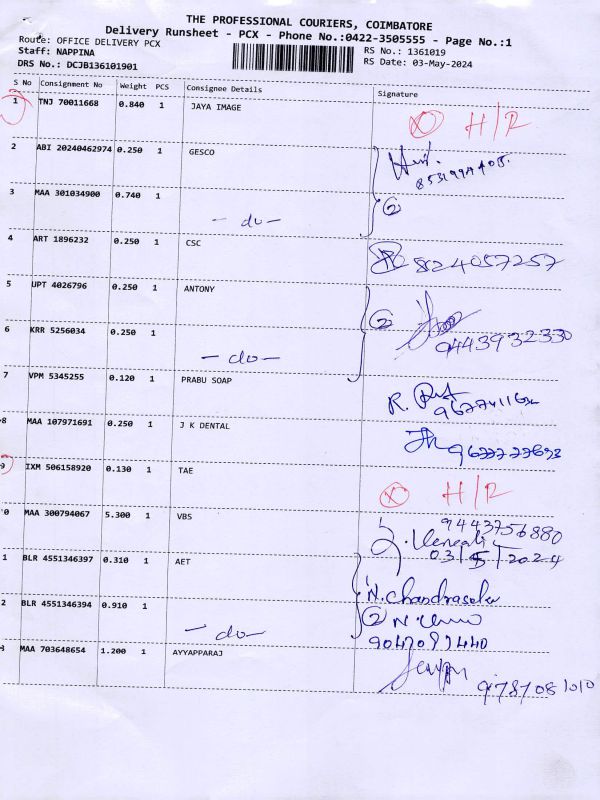 THE PROFESSIONAL COURIERS, COIMBATORE
Delivery Runsheet - PCX - Phone No.:0422-3505555 - Page No.:1
Route: OFFICE DELIVERY PCX
Staff: NAPPINA
DRS No.: DCJB136101901
RS No.: 1361019
RS Date: 03-May-2024
S No Consignment No Weight PCS Consignee Details Signature
1 TNJ 70011668 0.840 1 JAYA IMAGE H/R
2 ABI 20240462974 0.250 1 GESCO
3 MAA 301034900 0.740 1 - do - 2
4 ART 1896232 0.250 1 CSC 8524057257
5 UPT 4026796 0.250 1 ANTONY 2
9443932330
6 KRR 5256034 0.250 1 - do -
7 VPM 5345255 0.120 1 PRABU SOAP R.
8 MAA 107971691 0.250 1 J K DENTAL
9 IXM 506158920 0.130 1 TAE H/R
0 MAA 300794067 5.300 1 VBS 9443756880
03/5/2024
1 BLR 4551346397 0.310 1 AET N. Chandrasekar
2 BLR 4551346394 0.910 1 - do - 2
3 MAA 703648654 1.200 1 AYYAPPARAJ
9787081010